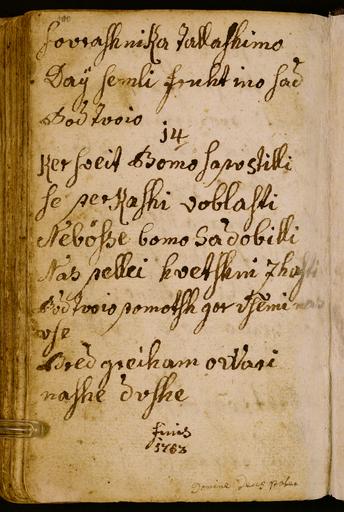 sovrashnika Tallashimo
Daÿ semli frukt ino sad
Bod tvoio
14
Ker sveit Bomo sapvstilli
se per Kashi voblasti
Nebösse bomo Sadobilli
Nas pellei k vetshni zhasti
Bod tvoio pomotsh gor vsemi nas
vse
Pred greiham o Wari
nashe dvshe
finis
1783
Domine